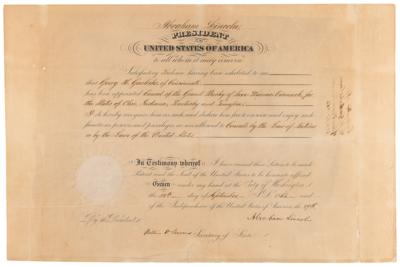 Abraham Lincoln,
PRESIDENT
OF
UNITED STATES OF AMERICA
to all whom it may concern
Satisfactory evidence having been exhibited to me
that George H. Garlichs, of Cincinnati
has been appointed Consul of the Grand Duchy of Saxe Weimar Eisenach, for
the States of Ohio, Indiana, Kentucky and
I do hereby recognise him as such and declare him free to exercise and enjoy such
functions powers and privileges as are allowed to Consuls by the Law of Nations
or by the Laws of the United States
In Testimony whereof I have caused these Letters to be made
Patent and the Seal of the United States to be hereunto affixed
Given under my hand at the City of Washington
the day of September A.D. and
of the Independence of the United States of America, the
Abraham Lincoln
By the President
Secretary of State